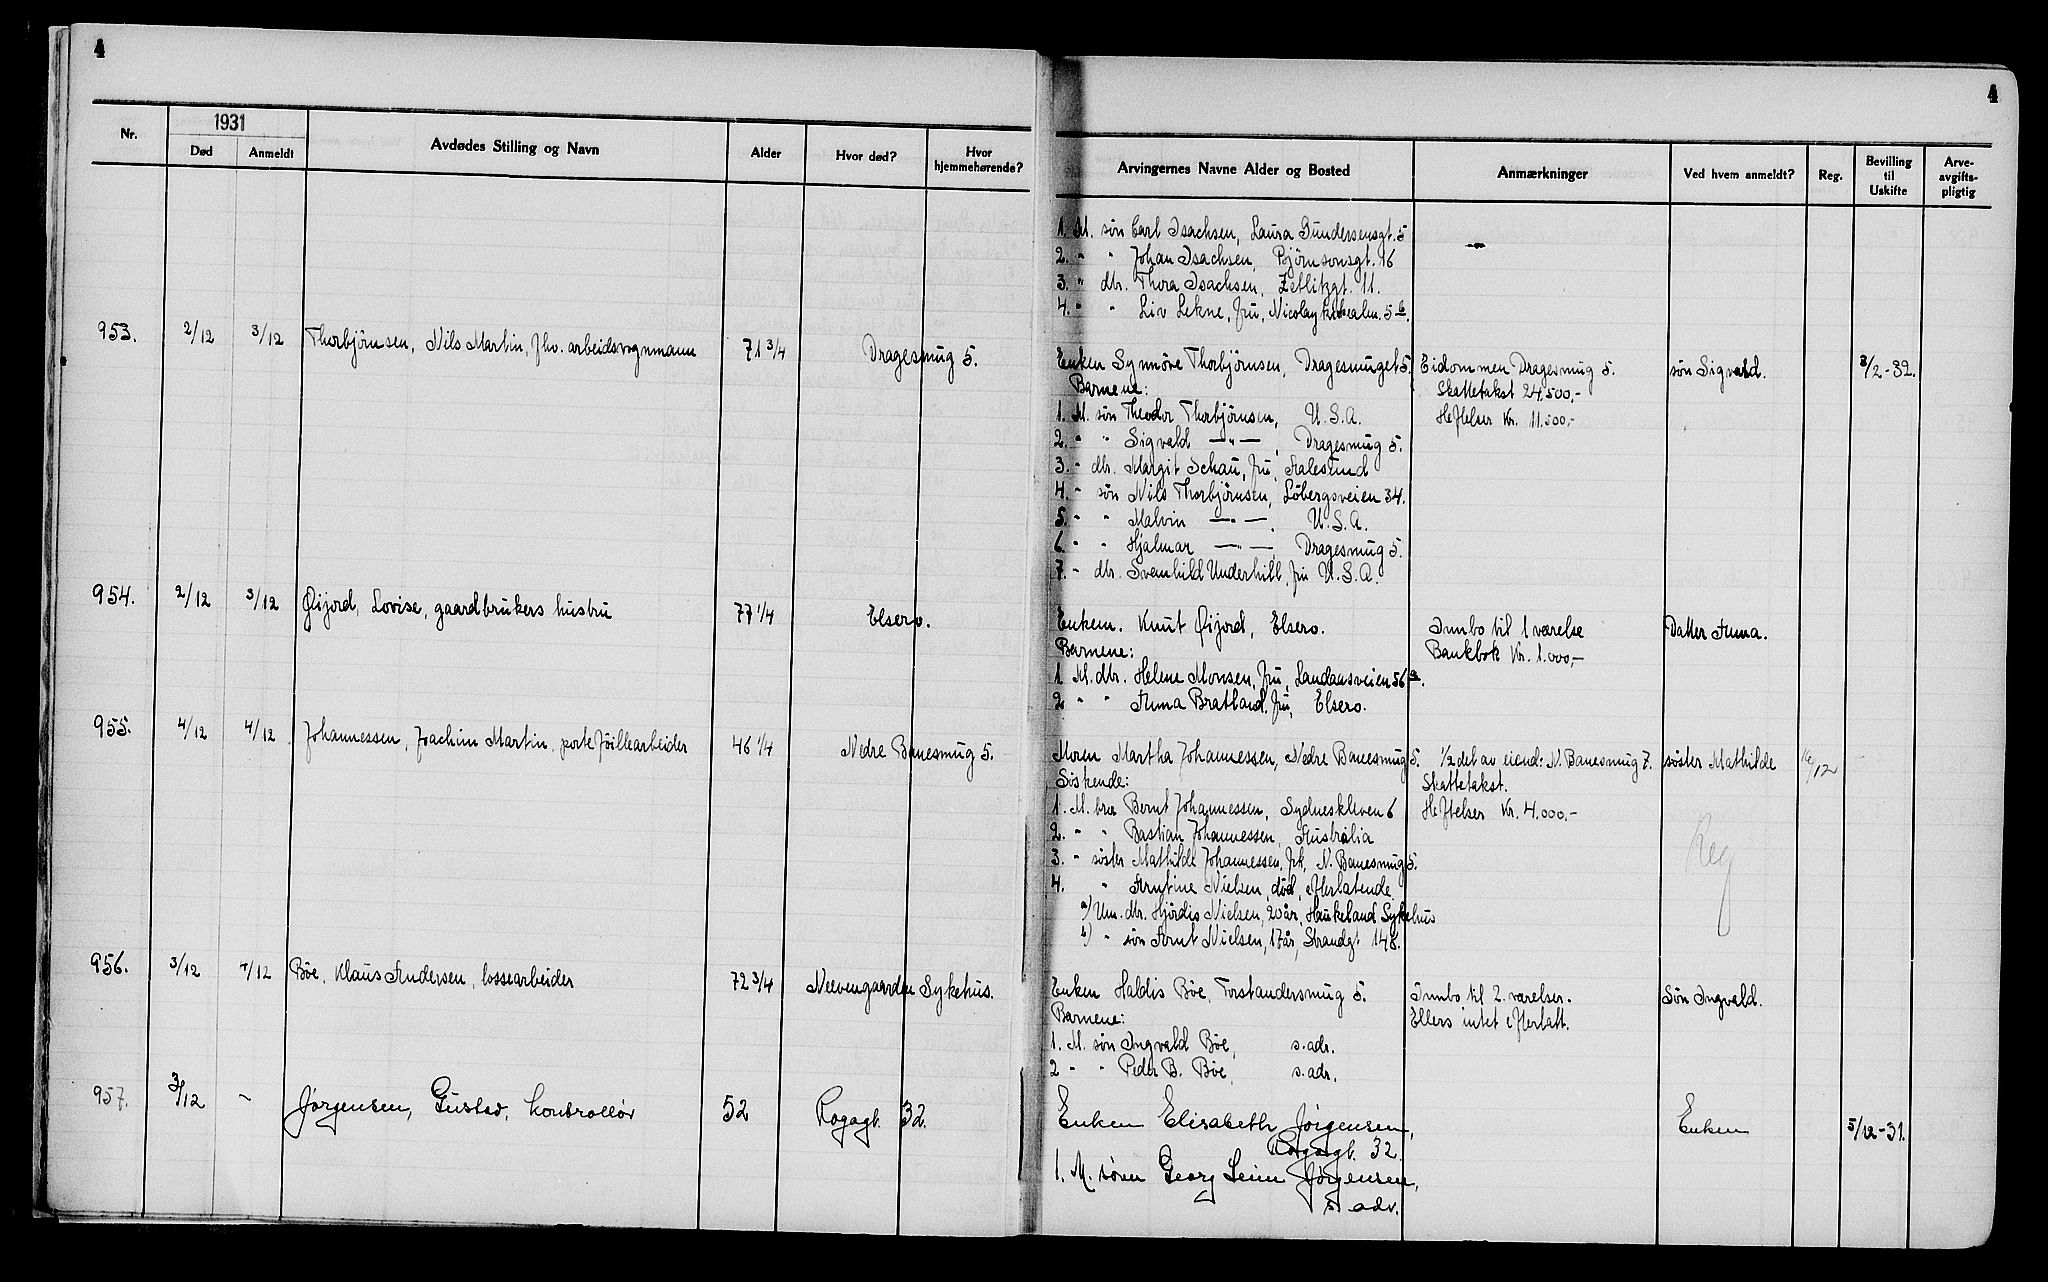 4
4
Nr.
1931
Død
Anmeldt
Avdødes Stilling og Navn
Alder
Hvor død?
Hvor hjemmehørende?
Arvingernes Navne Alder og Bosted
Anmærkninger
Ved hvem anmeldt?
Reg.
Bevilling til Uskifte
Arve-avgifts-pligtig
1. M. søn Carl Isachsen, Laura Gundersensgt. 5
2. " " Johan Isachsen, Bjørnsonsgt. 16
3. " dtr. Thora Isachsen, Zetlitzgt. 11.
4. " " Liv Lekne, fru, Nicolaykirkealm. 5 b.
953. 2/12 3/12 Thorbjørnsen, Nils Martin, fhv. arbeidsvognmann 71 3/4 Dragesmug 5.
Enken Synnøve Thorbjørnsen, Dragesmuget 5. Eidommen Dragesmug 5. søn Sigvald. 3/2-32.
Barnene: Skattetakst 24.500,-
1. M. søn Theodor Thorbjørnsen, U.S.A. Heftelser Kr. 11.500,-
2. " " Sigvald —"— , Dragesmug 5.
3. " dtr. Margit Schau, fru, Aalesund
4. " søn Nils Thorbjørnsen, Løbergsveien 34.
5. " " Malvin —"— , U.S.A.
6. " " Hjalmar —"— , Dragesmug 5.
7. " dtr. Svenhild Underhill, fru U.S.A.
954. 2/12 3/12 Øijord, Lovise, gaardbrukers hustru 77 1/4 Elsero.
Enkem. Knut Øijord, Elsero. Innbo til 1 værelse Datter Anna.
Barnene: Bankbok Kr. 1.000,-
1 M. dtr. Helene Monsen, fru, Landaasveien 56 a.
2 " " Anna Bratland, fru, Elsero.
955. 4/12 4/12 Johannessen, Joachim Martin, porteføillearbeider 46 1/4 Nedre Banesmug 5.
Moren Martha Johannessen, Nedre Banesmug 5. 1/2 del av eiend: N. Banesmug 7. søster Mathilde 16/12
Søskende: Skattetakst.
1. M. bror Bernt Johannessen, Sydneskleven 6 Heftelser Kr. 4.000,-
2. " " Bastian Johannessen, Australia
3. " søster Mathilde Johannessen, frk, N. Banesmug 5. Reg
4. " Arntine Nielsen, død, efterlatende
a) Um. dtr. Hjørdis Nielsen, 20 år, Haukeland Sykehus
b) " søn Arnt Nielsen, 17 år, Strandgt 148.
956. 3/12 4/12 Bøe, Klaus Andersen, lossearbeider 72 3/4 Neevengaarden Sykehus.
Enken Haldis Bøe, Forstandersmug 5. Innbo til 2. værelser. Søn Ingvald.
Barnene: Ellers intet efterlatt.
1. M. søn Ingvald Bøe, s. adr.
2 " " Peder B. Bøe, s. adr.
957. 3/12 ~ Jørgensen, Gustav, kontrollør 52 Rogagt. 32.
Enken Elisabeth Jørgensen, Enken 5/12-31.
Rogagt. 32.
1. M. sønn Georg Leim Jørgensen,
s. adr.